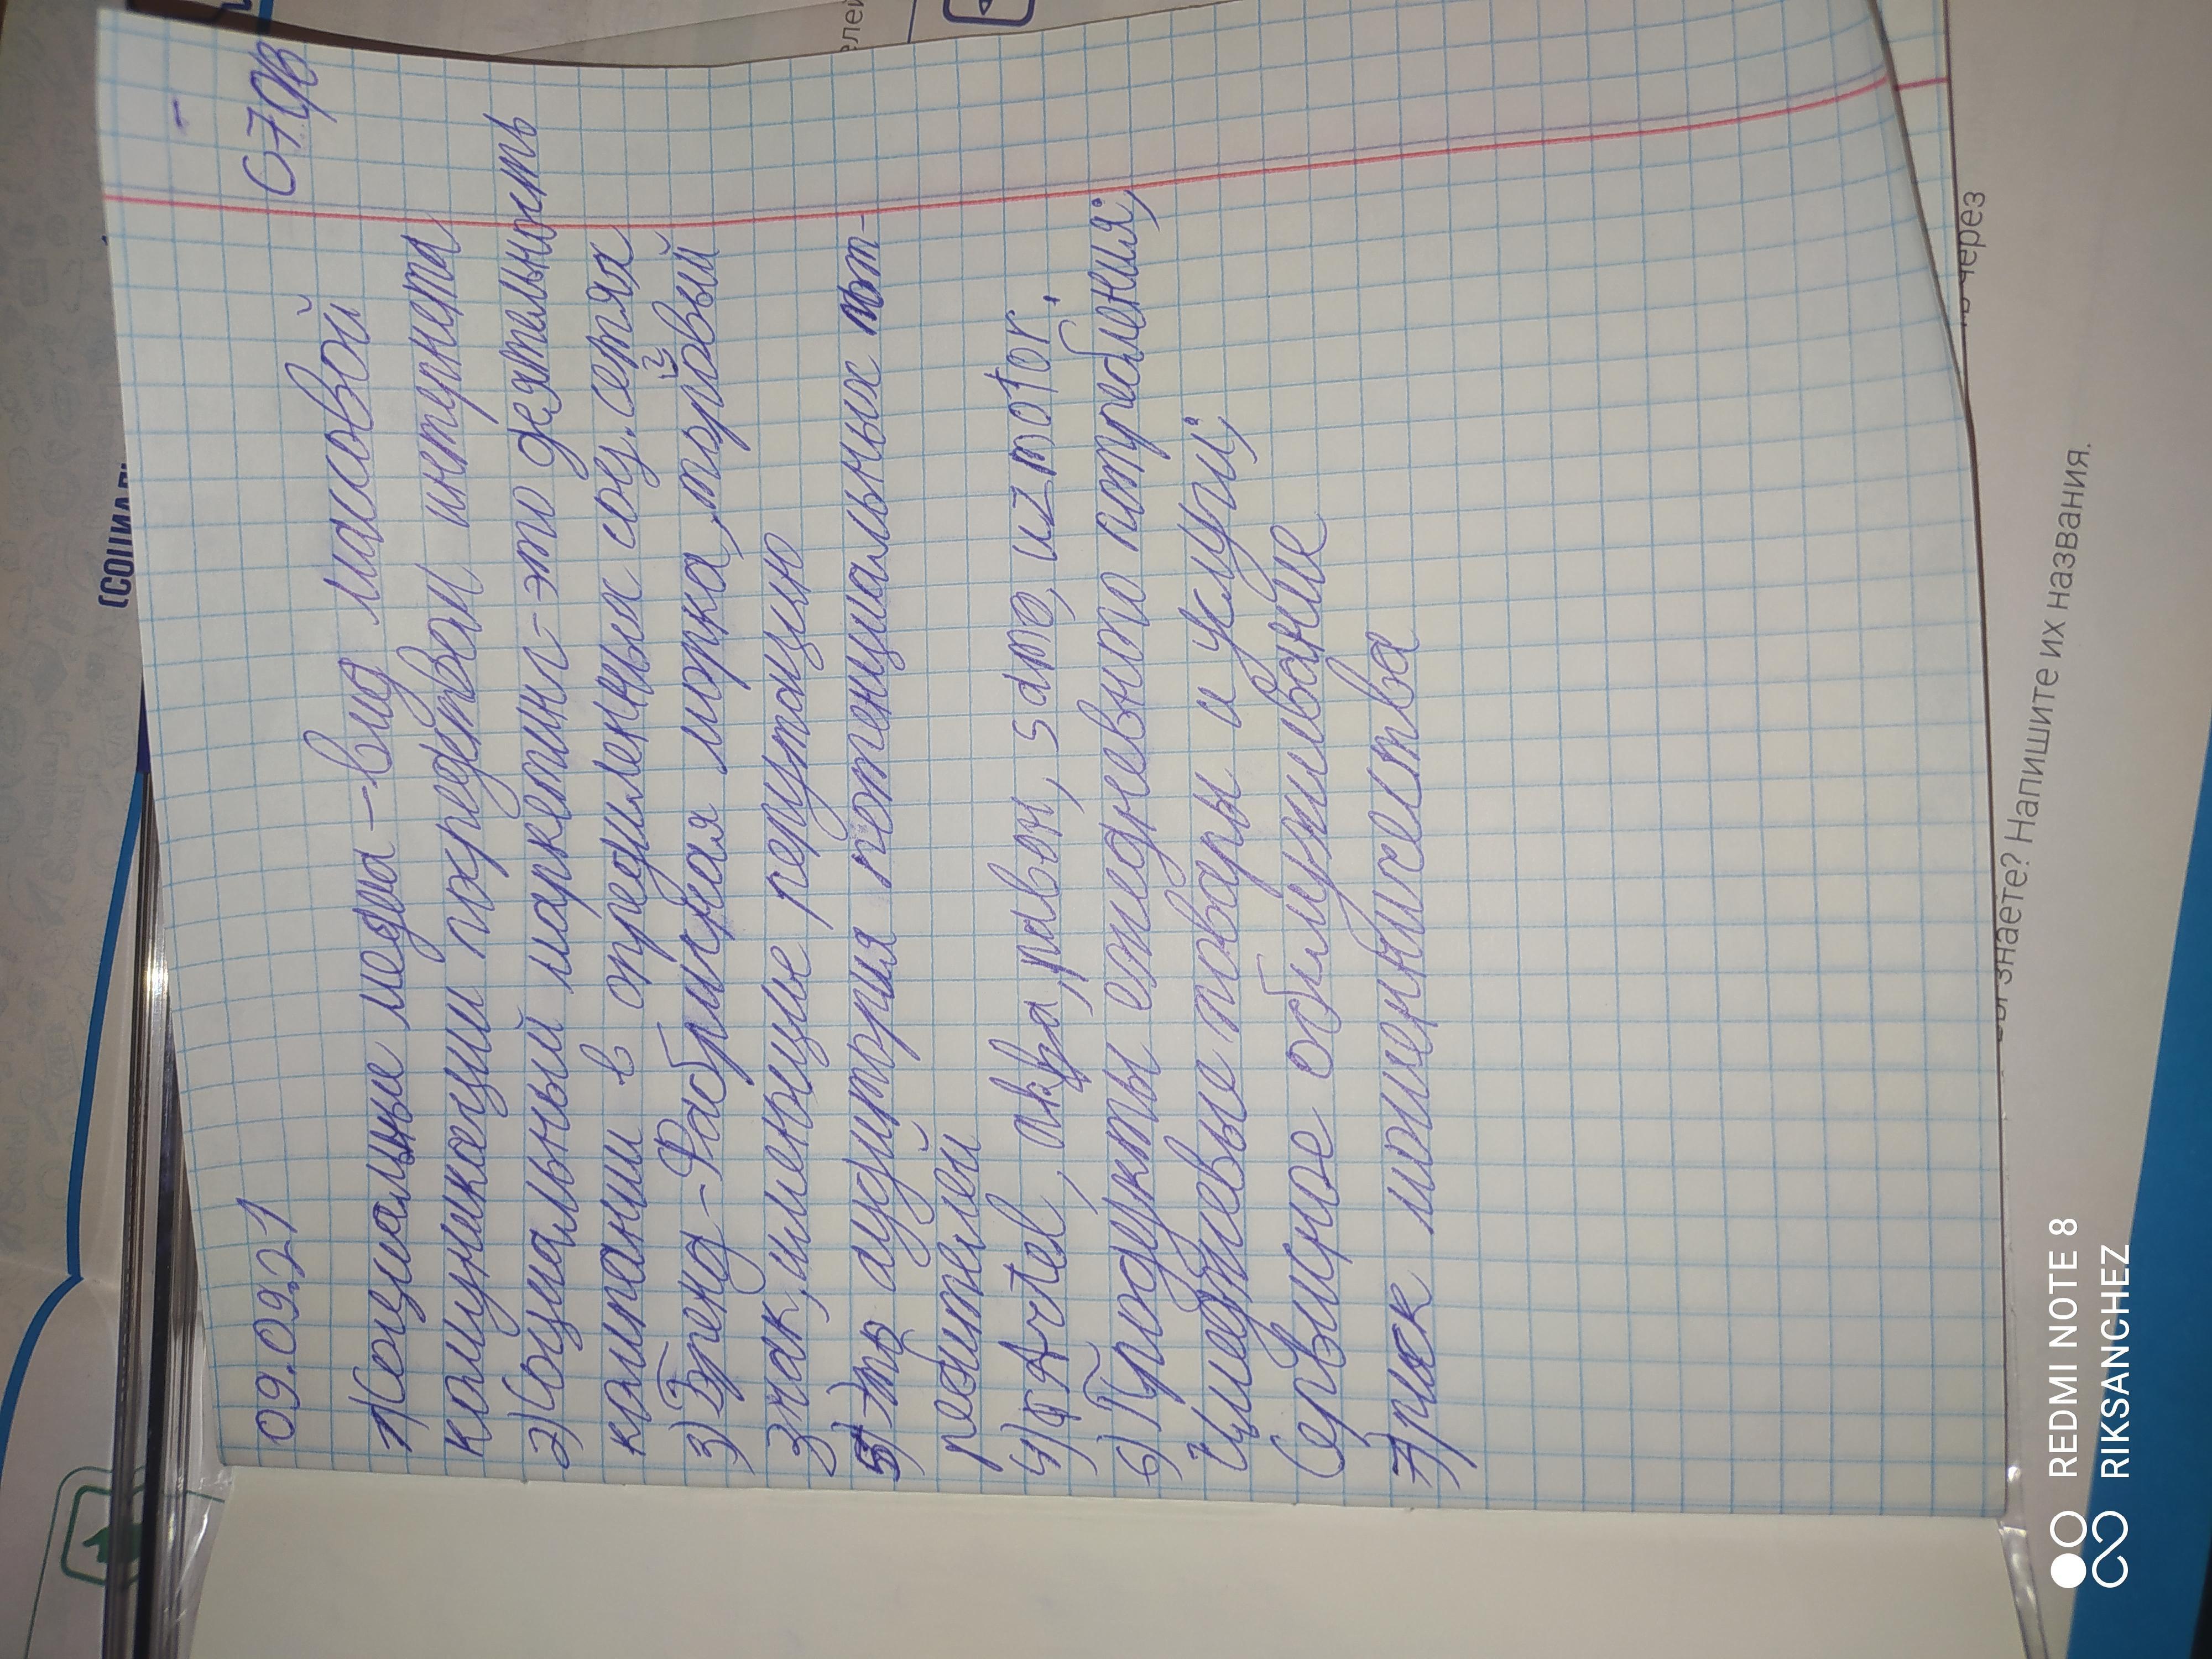 09.09.21 С-79В
1) Социальные медиа - вид массовой
комуникации посредством интернета
2) Социальный маркетинг - это деятельность
компании в определенных соц. сетях
3) Бренд - Фабричная морка, торговый
знак, имеющие репутацию
5) Это аудитория потенциальных пот-
ребителей
4) Artel, akfa, ravon, samo, uzmotor.
6) Продукты ежедневного потребления;
Имеджевые товары и услуги;
Сервисное обслуживание
7) риск мошенничества
(СОЦИАЛЬ
елей
ь через
вы знаете? Напишите их названия.
REDMI NOTE 8
RIKSANCHEZ